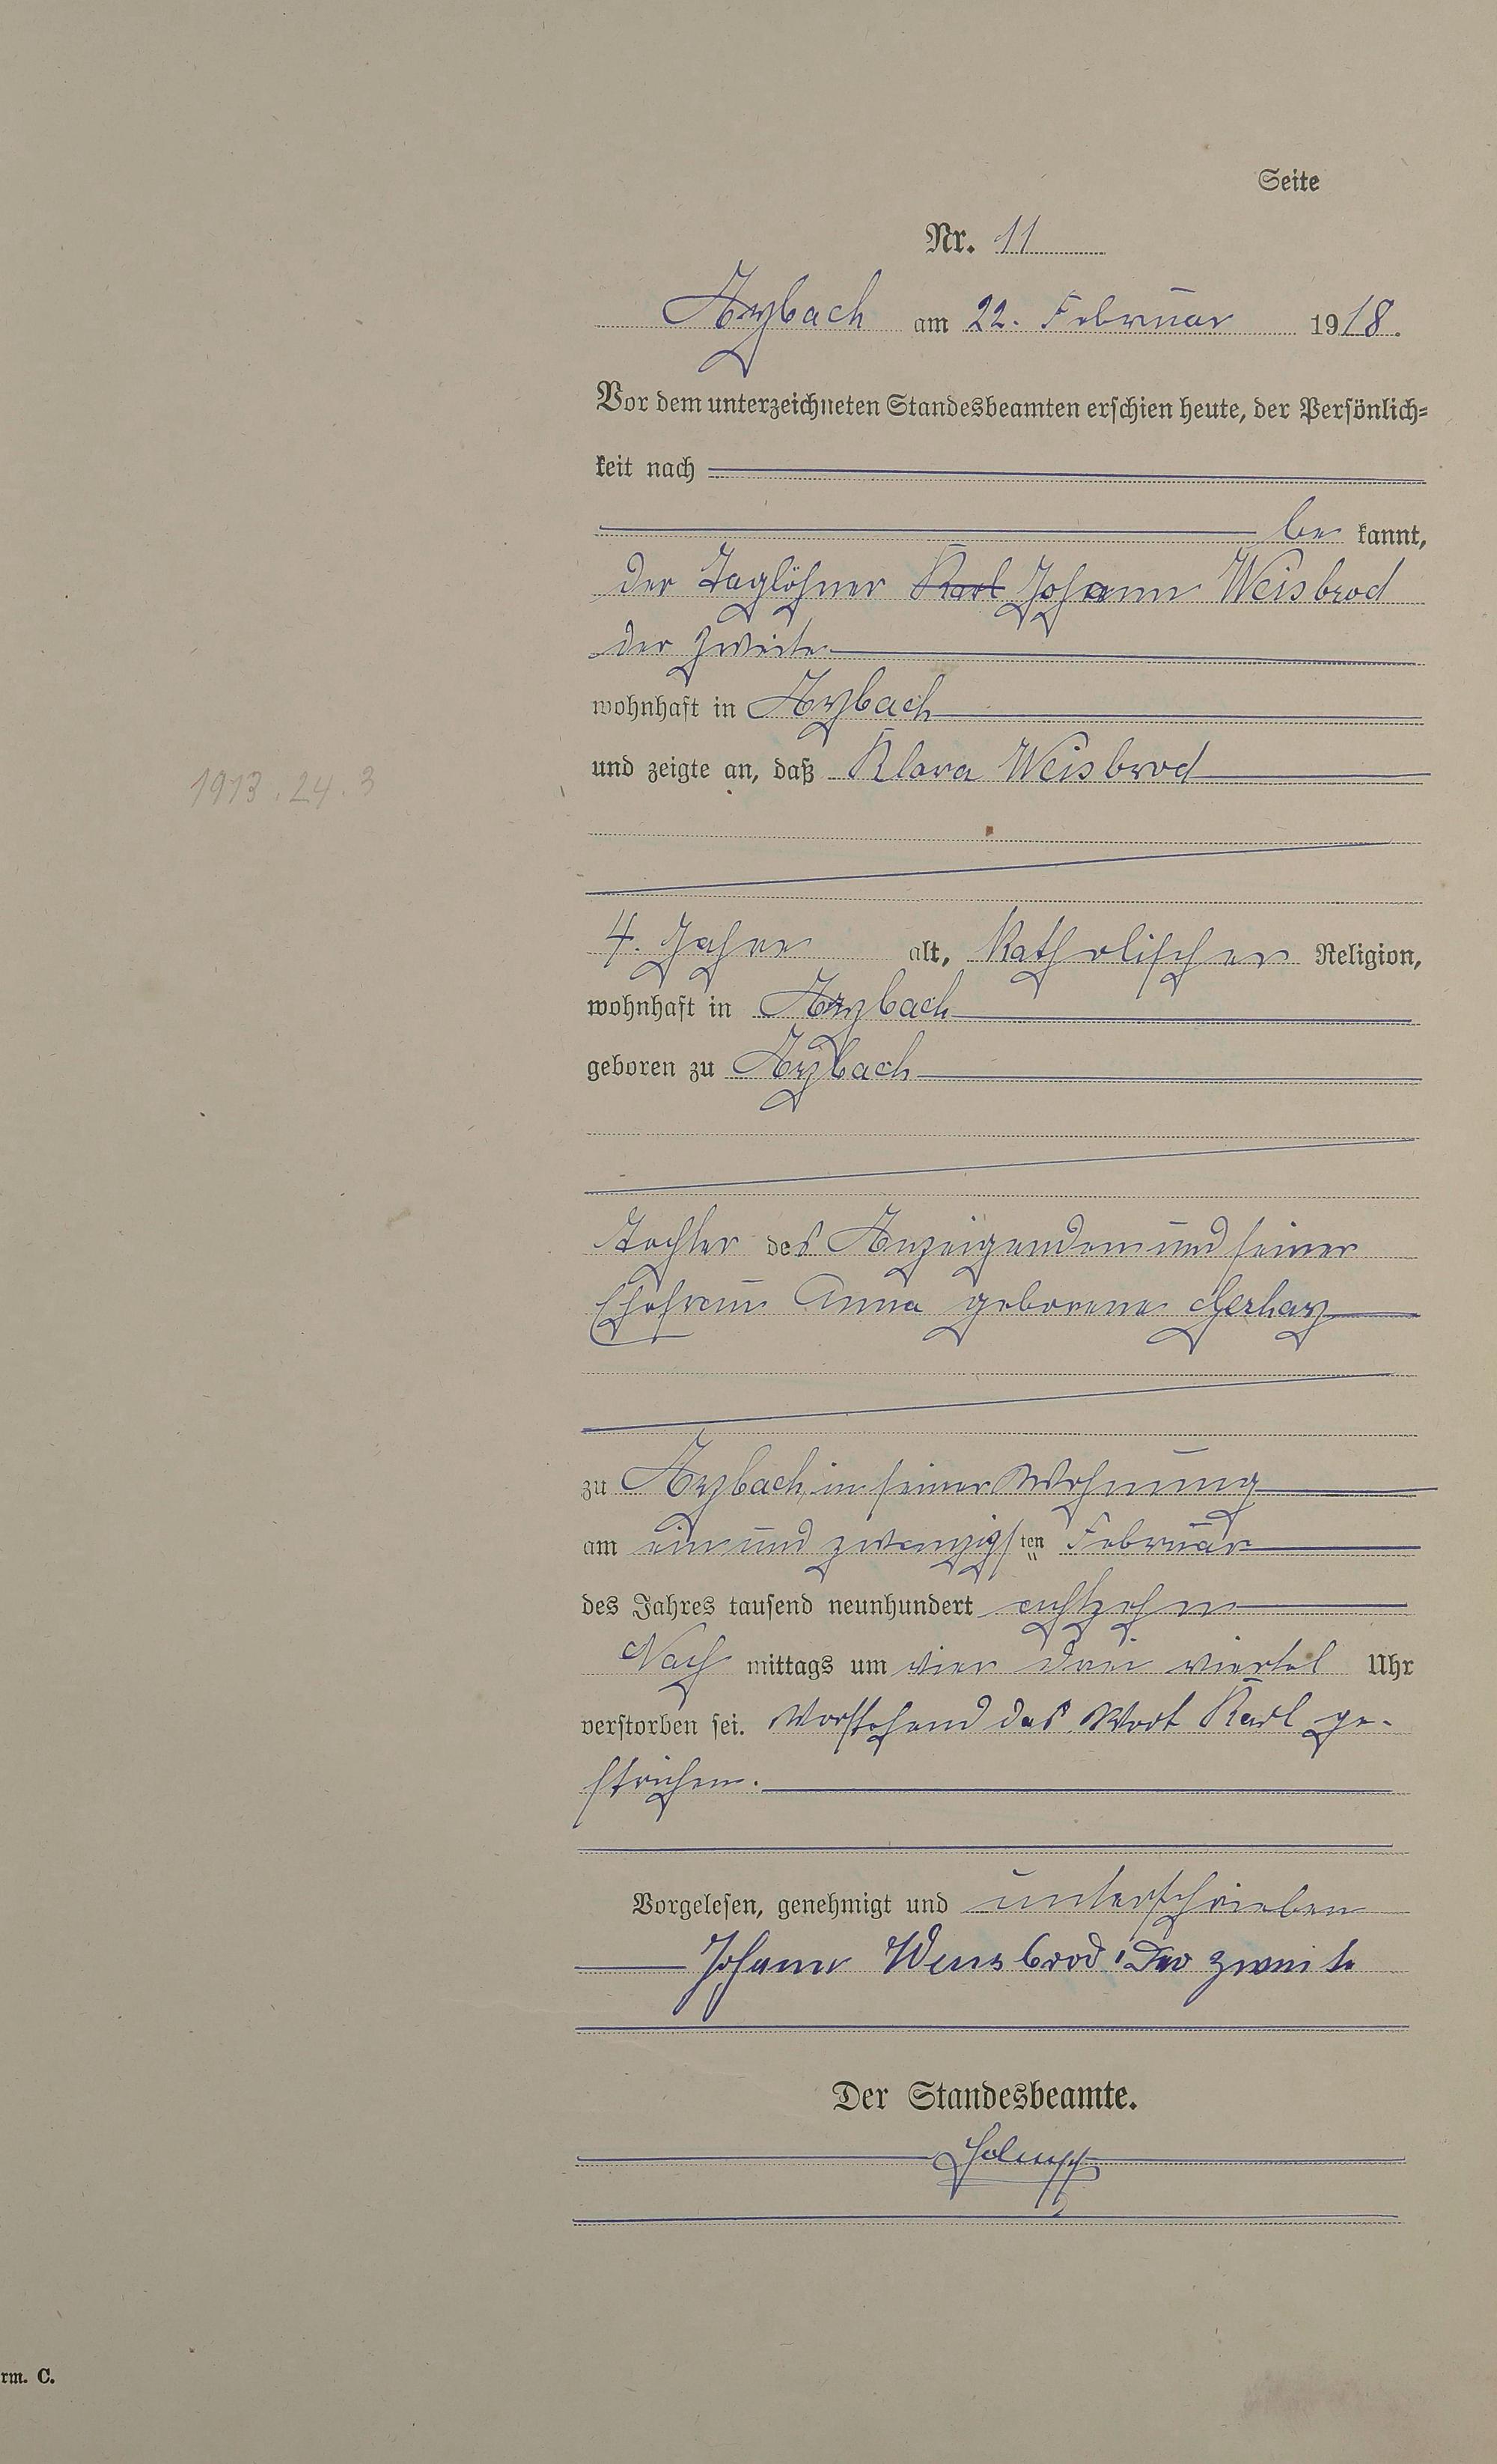 Seite
Nr. 11
Arzbach am 22. Februar 1918.
Vor dem unterzeichneten Standesbeamten erschien heute, der Persönlich=
keit nach
be kannt,
der Taglöhner Karl Johann Weisbrod
der Zweite
wohnhaft in Arzbach
und zeigte an, daß Klara Weisbrod
1913.24.3
4. Jahre alt, Katholischer Religion,
wohnhaft in Arzbach
geboren zu Arzbach
Tochter des Anzeigenden und seiner
Ehefrau Anna geborene Gerharz
zu Arzbach, in seiner Wohnung
am ein und zwanzigsten Februar
des Jahres tausend neunhundert achtzehn
Nach mittags um vier drei viertel Uhr
verstorben sei. Vorstehend das Wort Karl ge-
strichen.
Vorgelesen, genehmigt und unterschrieben
Johann Weisbrod Der zweite
Der Standesbeamte.
rm. C.